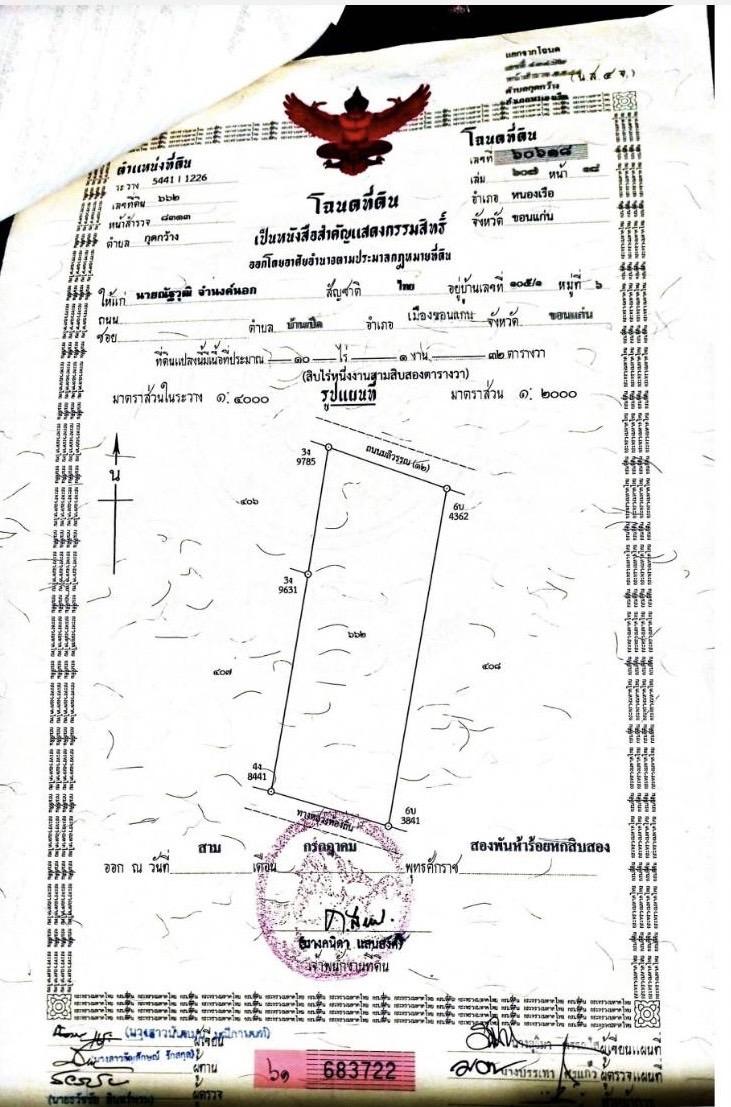 แยกจากโฉนด
(น.ส.๔ จ.)
ตำบลกุดกว้าง
ตำแหน่งที่ดิน
ระวาง 5441 I 1226
เลขที่ดิน ๖๖๒
หน้าสำรวจ ๘๓๑๓
ตำบล กุดกว้าง
โฉนดที่ดิน
เลขที่ ๖๐๖๑๘
เล่ม ๖๐๗ หน้า ๑๘
อำเภอ หนองเรือ
จังหวัด ขอนแก่น
โฉนดที่ดิน
เป็นหนังสือสำคัญแสดงกรรมสิทธิ์
ออกโดยอาศัยอำนาจตามประมวลกฎหมายที่ดิน
ให้แก่ นายณัฐวุฒิ จำนงค์นอก สัญชาติ ไทย อยู่บ้านเลขที่ ๑๐๕/๑ หมู่ที่ ๖
ถนน
ซอย ตำบล บ้านเป็ด อำเภอ เมืองขอนแก่น จังหวัด ขอนแก่น
ที่ดินแปลงนี้มีเนื้อที่ประมาณ ๑๐ ไร่ ๑ งาน ๓๒ ตารางวา
(สิบไร่หนึ่งงานสามสิบสองตารางวา)
มาตราส่วนในระวาง ๑: ๔๐๐๐ รูปแผนที่ มาตราส่วน ๑: ๒๐๐๐
น
3ง
9785
ถนนมลิวรรณ (๑๒)
6บ
4362
๔๐๖
3ง
9631
๖๖๒
๔๐๗
๔๐๘
4ง
8441
ทางหลวงท้องถิ่น
6บ
3841
ออก ณ วันที่ สาม เดือน กรกฎาคม พุทธศักราช สองพันห้าร้อยหกสิบสอง
(นางคนิดา แสบสรีศรี)
เจ้าพนักงานที่ดิน
ผู้เขียน
ผู้ทาน
ผู้ตรวจ
ผู้เขียนแผนที่
ผู้ตรวจแผนที่
๖๑ 683722